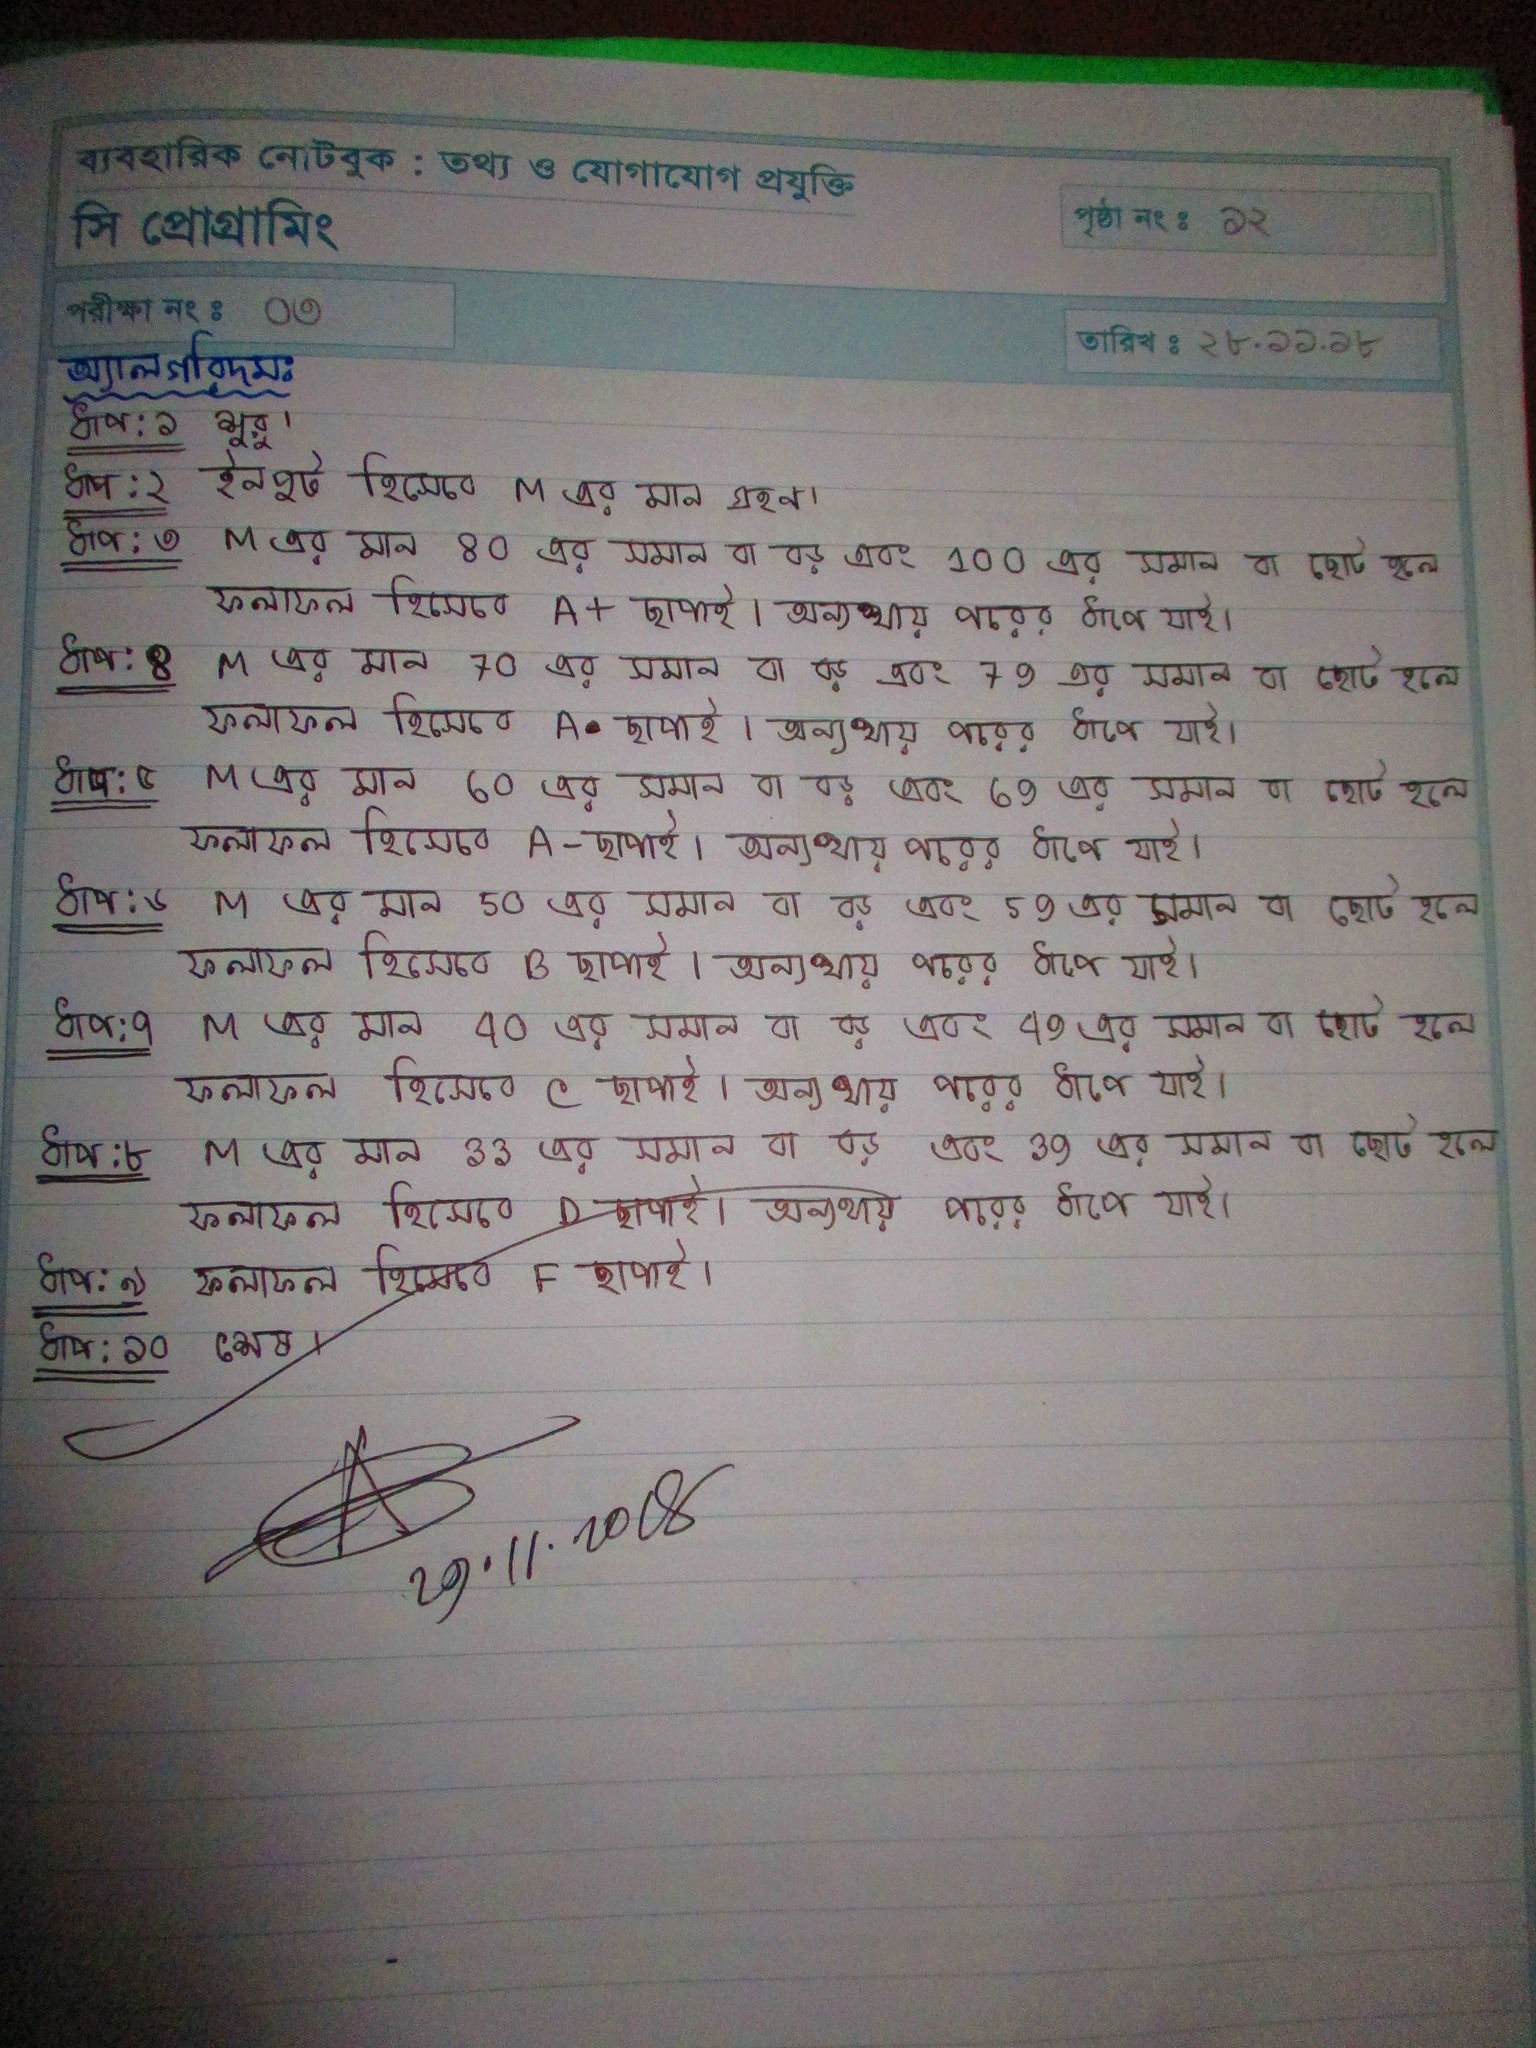 ব্যবহারিক নোটবুক : তথ্য ও যোগাযোগ প্রযুক্তি
সি প্রোগ্রামিং
পৃষ্ঠা নং ঃ ১২
পরীক্ষা নং ঃ ০৩
তারিখ ঃ ২৮.১১.১৮
অ্যালগরিদমঃ
ধাপ:১ শুরু।
ধাপ:২ ইনপুট হিসেবে M এর মান গ্রহন।
ধাপ:৩ M এর মান 80 এর সমান বা বড় এবং 100 এর সমান বা ছোট হলে
ফলাফল হিসেবে A+ ছাপাই। অন্যথায় পরের ধাপে যাই।
ধাপ:৪ M এর মান 70 এর সমান বা বড় এবং 79 এর সমান বা ছোট হলে
ফলাফল হিসেবে A ছাপাই। অন্যথায় পরের ধাপে যাই।
ধাপ:৫ M এর মান 60 এর সমান বা বড় এবং 69 এর সমান বা ছোট হলে
ফলাফল হিসেবে A- ছাপাই। অন্যথায় পরের ধাপে যাই।
ধাপ:৬ M এর মান 50 এর সমান বা বড় এবং 59 এর সমান বা ছোট হলে
ফলাফল হিসেবে B ছাপাই। অন্যথায় পরের ধাপে যাই।
ধাপ:৭ M এর মান 40 এর সমান বা বড় এবং 49 এর সমান বা ছোট হলে
ফলাফল হিসেবে C ছাপাই। অন্যথায় পরের ধাপে যাই।
ধাপ:৮ M এর মান 33 এর সমান বা বড় এবং 39 এর সমান বা ছোট হলে
ফলাফল হিসেবে D ছাপাই। অন্যথায় পরের ধাপে যাই।
ধাপ:৯ ফলাফল হিসেবে F ছাপাই।
ধাপ:১০ শেষ।
29.11.2018